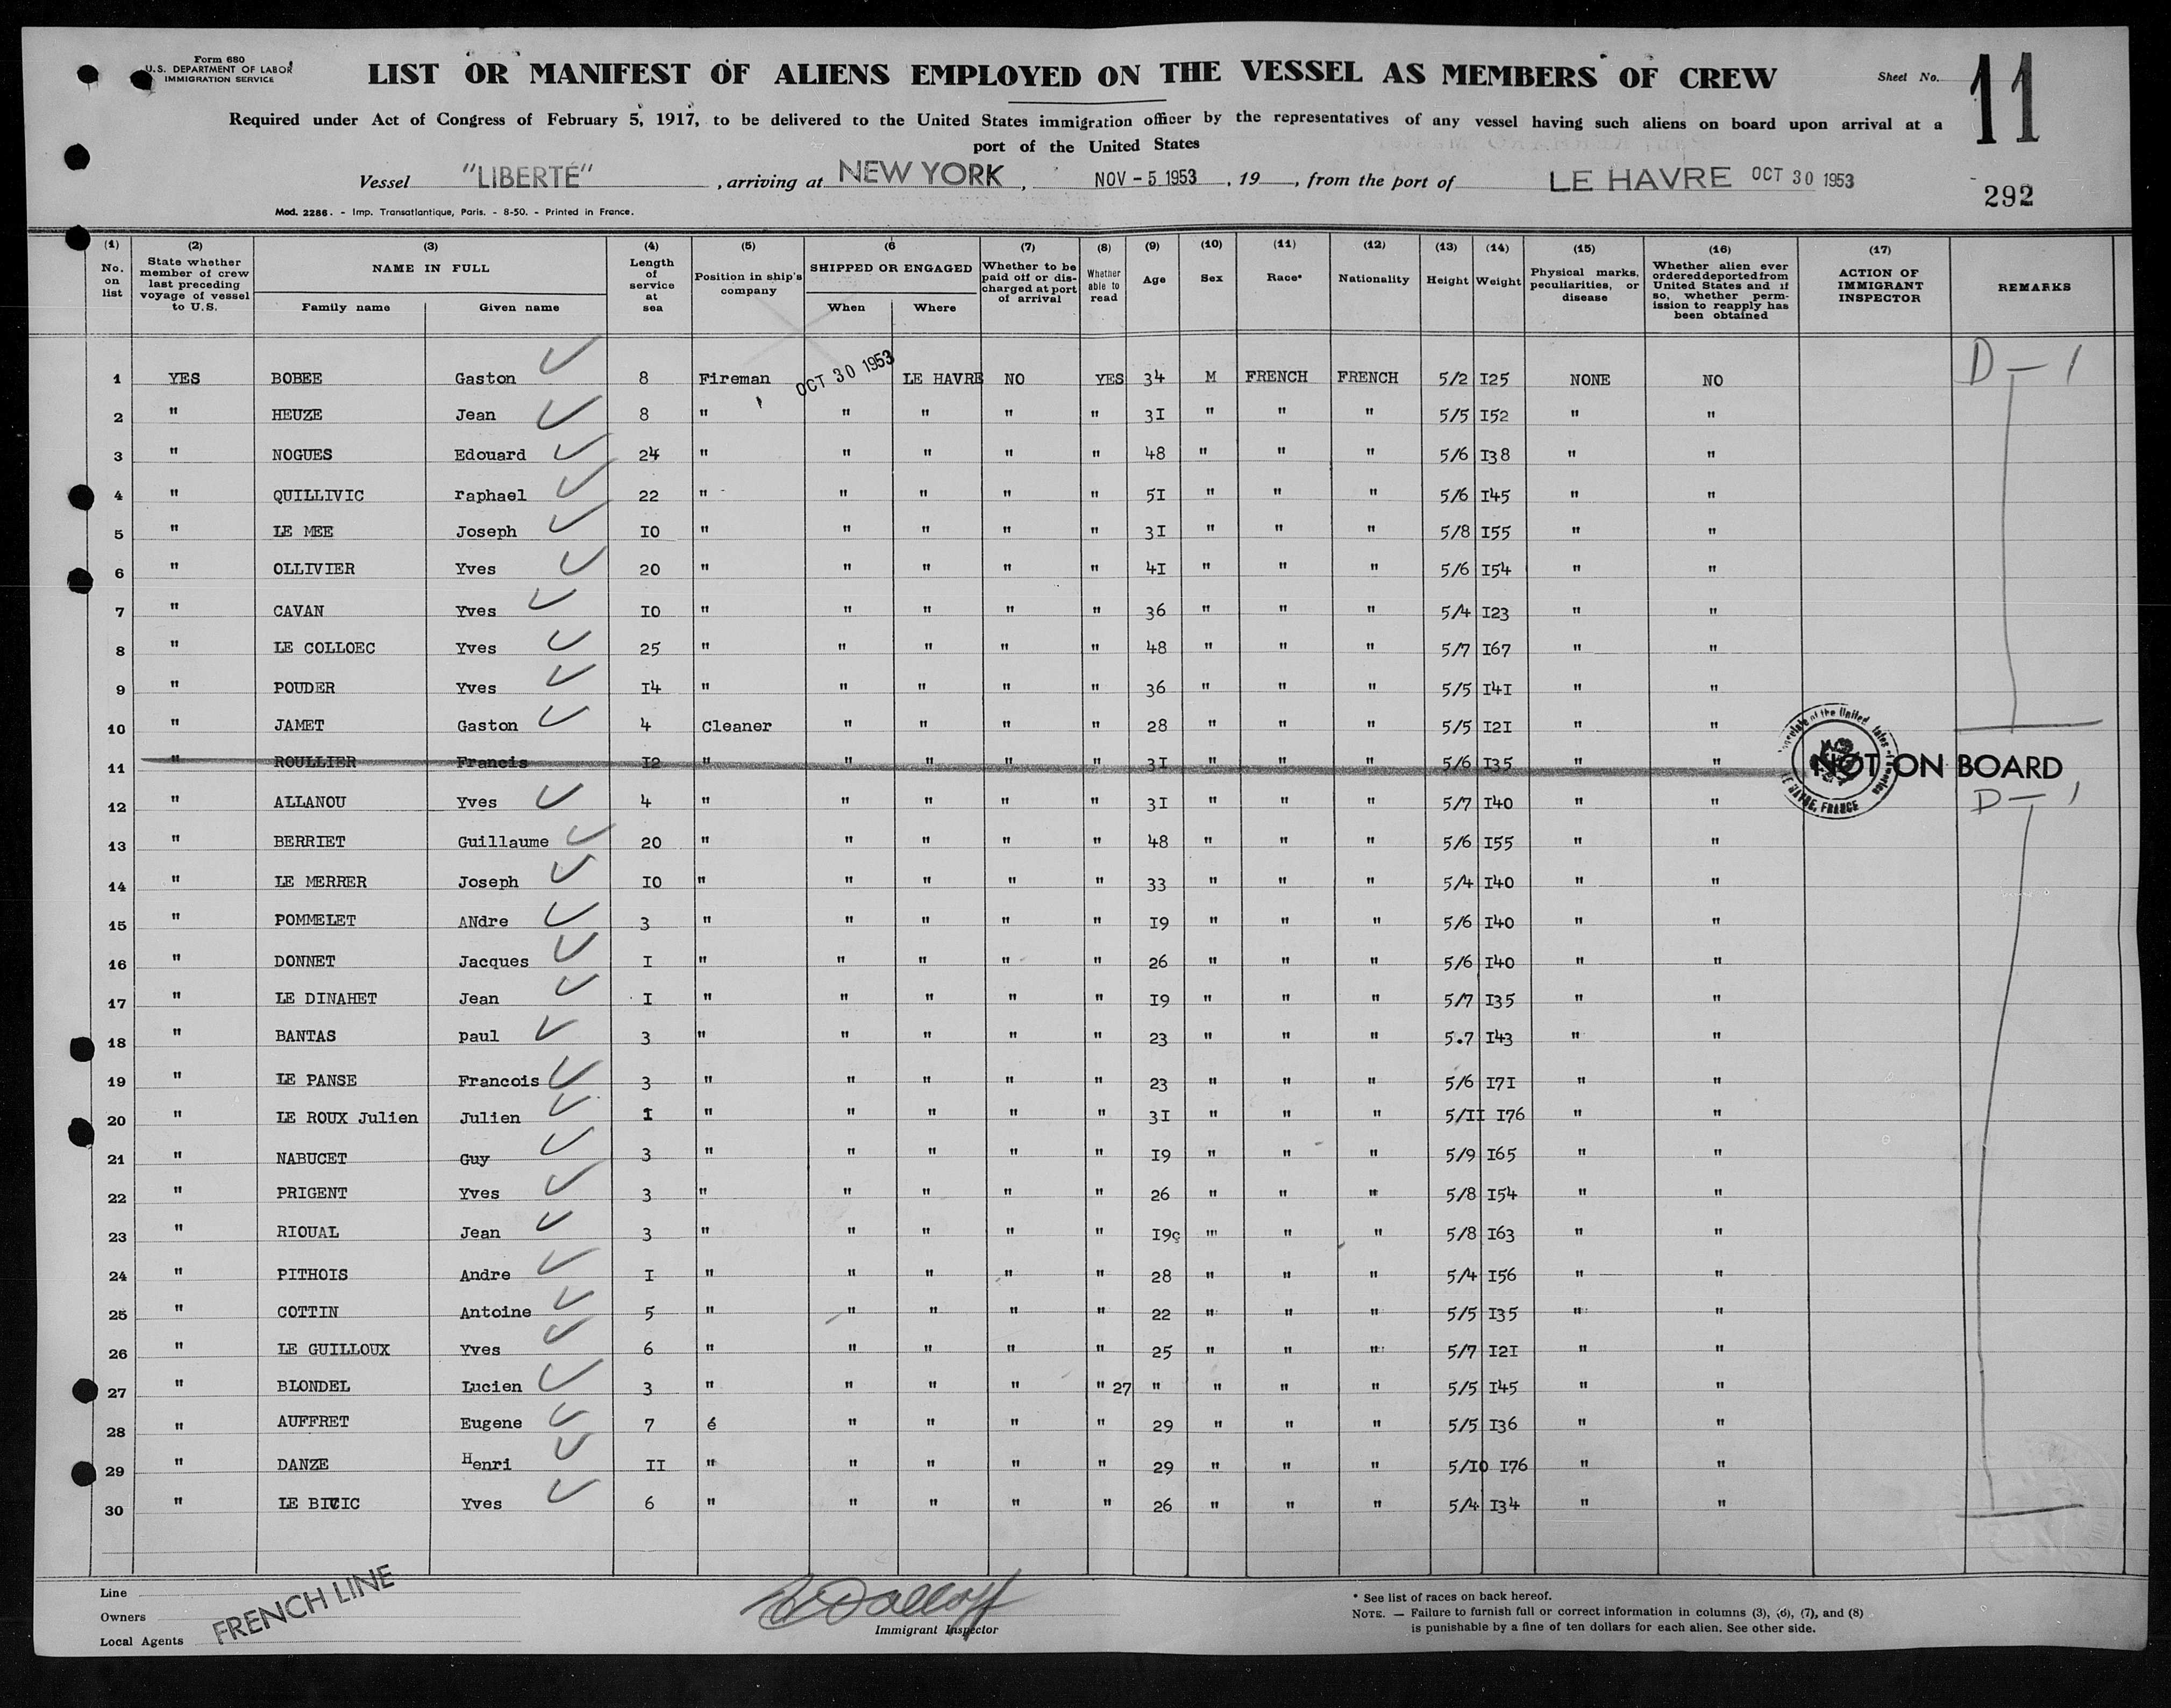 Form 680
U.S. DEPARTMENT OF LABOR
IMMIGRATION SERVICE
LIST OR MANIFEST OF ALIENS EMPLOYED ON THE VESSEL AS MEMBERS OF CREW
Sheet No. 11
Required under Act of Congress of February 5, 1917, to be delivered to the United States immigration officer by the representatives of any vessel having such aliens on board upon arrival at a
port of the United States
Vessel "LIBERTÉ" , arriving at NEW YORK , NOV - 5 1953 , 19 , from the port of LE HAVRE OCT 30 1953
292
Mod. 2286. - Imp. Transatlantique, Paris. - 8-50. - Printed in France.
(1) (2) (3) (4) (5) (6 (7) (8) (9) (10) (11) (12) (13) (14) (15) (16) (17)
No. on list | State whether member of crew last preceding voyage of vessel to U.S. | NAME IN FULL | Length of service at sea | Position in ship's company | SHIPPED OR ENGAGED | Whether to be paid off or discharged at port of arrival | Whether able to read | Age | Sex | Race* | Nationality | Height | Weight | Physical marks, peculiarities, or disease | Whether alien ever ordered deported from United States and if so, whether permission to reapply has been obtained | ACTION OF IMMIGRANT INSPECTOR | REMARKS
Family name | Given name | When | Where
1 YES BOBEE Gaston 8 Fireman OCT 30 1953 LE HAVRE NO YES 34 M FRENCH FRENCH 5/2 I25 NONE NO D-1
2 " HEUZE Jean 8 " " " " " 3I " " " 5/5 I52 " "
3 " NOGUES Edouard 24 " " " " " 48 " " " 5/6 I38 " "
4 " QUILLIVIC raphael 22 " " " " " 5I " " " 5/6 I45 " "
5 " LE MEE Joseph IO " " " " " 3I " " " 5/8 I55 " "
6 " OLLIVIER Yves 20 " " " " " 4I " " " 5/6 I54 " "
7 " CAVAN Yves IO " " " " " 36 " " " 5/4 I23 " "
8 " LE COLLOEC Yves 25 " " " " " 48 " " " 5/7 I67 " "
9 " POUDER Yves I4 " " " " " 36 " " " 5/5 I4I " "
10 " JAMET Gaston 4 Cleaner " " " " 28 " " " 5/5 I2I " "
11 " ROULLIER Francis I2 " " " " " 3I " " " 5/6 I35 " " NOT ON BOARD
12 " ALLANOU Yves 4 " " " " " 3I " " " 5/7 I40 " " D-1
13 " BERRIET Guillaume 20 " " " " " 48 " " " 5/6 I55 " "
14 " LE MERRER Joseph IO " " " " " 33 " " " 5/4 I40 " "
15 " POMMELET ANdre 3 " " " " " I9 " " " 5/6 I40 " "
16 " DONNET Jacques I " " " " " 26 " " " 5/6 I40 " "
17 " LE DINAHET Jean I " " " " " I9 " " " 5/7 I35 " "
18 " BANTAS paul 3 " " " " " 23 " " " 5.7 I43 " "
19 " LE PANSE Francois 3 " " " " " 23 " " " 5/6 I7I " "
20 " LE ROUX Julien Julien I " " " " " 3I " " " 5/II I76 " "
21 " NABUCET Guy 3 " " " " " I9 " " " 5/9 I65 " "
22 " PRIGENT Yves 3 " " " " " 26 " " " 5/8 I54 " "
23 " RIOUAL Jean 3 " " " " " I9ç " " " 5/8 I63 " "
24 " PITHOIS Andre I " " " " " 28 " " " 5/4 I56 " "
25 " COTTIN Antoine 5 " " " " " 22 " " " 5/5 I35 " "
26 " LE GUILLOUX Yves 6 " " " " " 25 " " " 5/7 I2I " "
27 " BLONDEL Lucien 3 " " " " " 27 " " " " 5/5 I45 " "
28 " AUFFRET Eugene 7 é " " " " 29 " " " 5/5 I36 " "
29 " DANZE Henri II " " " " " 29 " " " 5/IO I76 " "
30 " LE BIVIC Yves 6 " " " " " 26 " " " 5/4 I34 " "
LE HAVRE, FRANCE
Line
Owners
Local Agents
FRENCH LINE
Immigrant Inspector
* See list of races on back hereof.
NOTE. — Failure to furnish full or correct information in columns (3), (6), (7), and (8)
is punishable by a fine of ten dollars for each alien. See other side.